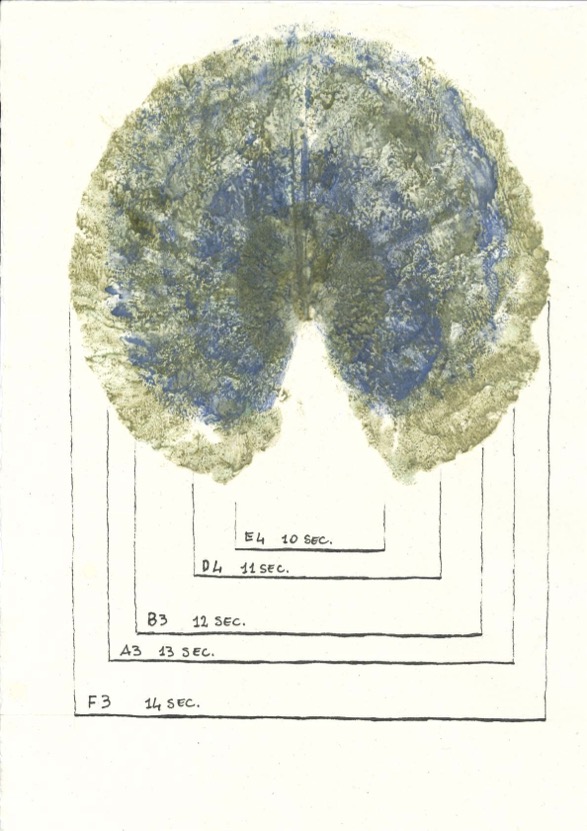 E4 10 SEC.
D4 11 SEC.
B3 12 SEC.
A3 13 SEC.
F3 14 SEC.